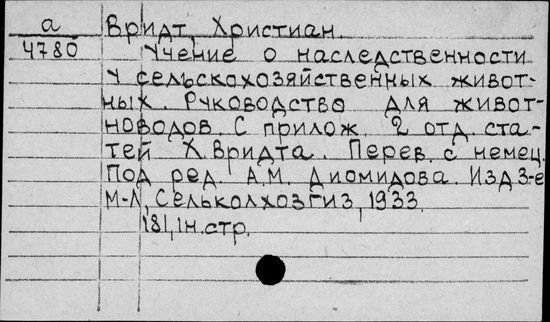 а Вридт, Христиан.
4780 Учение о наследственности
у сельскохозяйственных живот-
ных. Руководство для живот-
новодов. С прилож. 2 отд. ста-
тей Х. Вридта. Перев. с немец.
Под ред. А.М. Диомидова. Изд 3-е
М-Л, Сельколхозгиз, 1933.
181, 1н. стр.